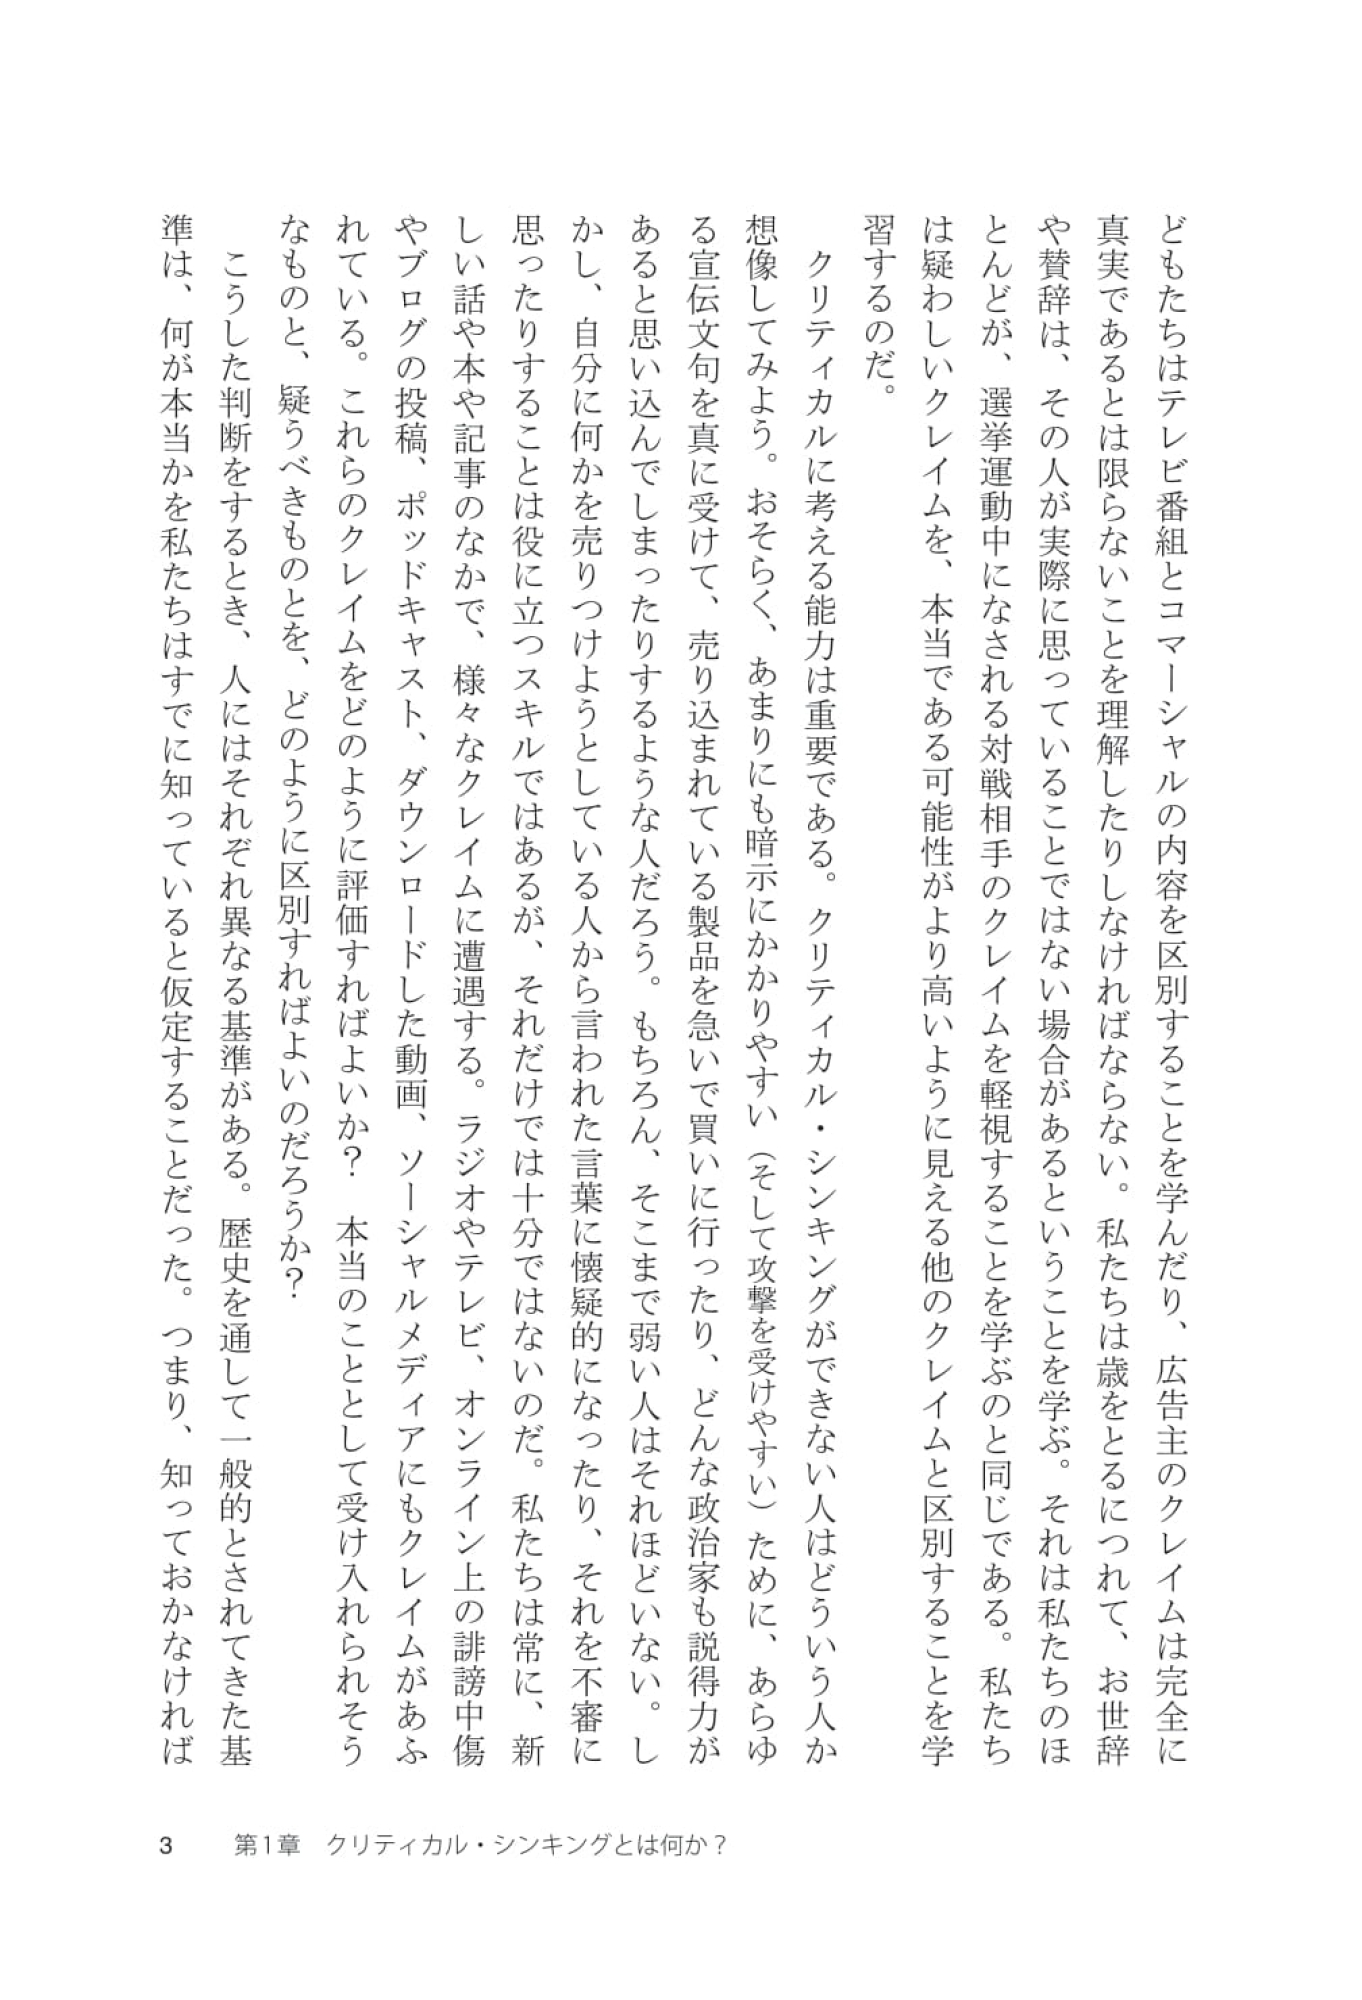 どもたちはテレビ番組とコマーシャルの内容を区別することを学んだり、広告主のクレイムは完全に
真実であるとは限らないことを理解したりしなければならない。私たちは歳をとるにつれて、お世辞
や賛辞は、その人が実際に思っていることではない場合があるということを学ぶ。それは私たちのほ
とんどが、選挙運動中になされる対戦相手のクレイムを軽視することを学ぶのと同じである。私たち
は疑わしいクレイムを、本当である可能性がより高いように見える他のクレイムと区別することを学
習するのだ。
クリティカルに考える能力は重要である。クリティカル・シンキングができない人はどういう人か
想像してみよう。おそらく、あまりにも暗示にかかりやすい（そして攻撃を受けやすい）ために、あらゆ
る宣伝文句を真に受けて、売り込まれている製品を急いで買いに行ったり、どんな政治家も説得力が
あると思い込んでしまったりするような人だろう。もちろん、そこまで弱い人はそれほどいない。し
かし、自分に何かを売りつけようとしている人から言われた言葉に懐疑的になったり、それを不審に
思ったりすることは役に立つスキルではあるが、それだけでは十分ではないのだ。私たちは常に、新
しい話や本や記事のなかで、様々なクレイムに遭遇する。ラジオやテレビ、オンライン上の誹謗中傷
やブログの投稿、ポッドキャスト、ダウンロードした動画、ソーシャルメディアにもクレイムがあふ
れている。これらのクレイムをどのように評価すればよいか？　本当のこととして受け入れられそう
なものと、疑うべきものとを、どのように区別すればよいのだろうか？
こうした判断をするとき、人にはそれぞれ異なる基準がある。歴史を通して一般的とされてきた基
準は、何が本当かを私たちはすでに知っていると仮定することだった。つまり、知っておかなければ
3　第1章　クリティカル・シンキングとは何か？